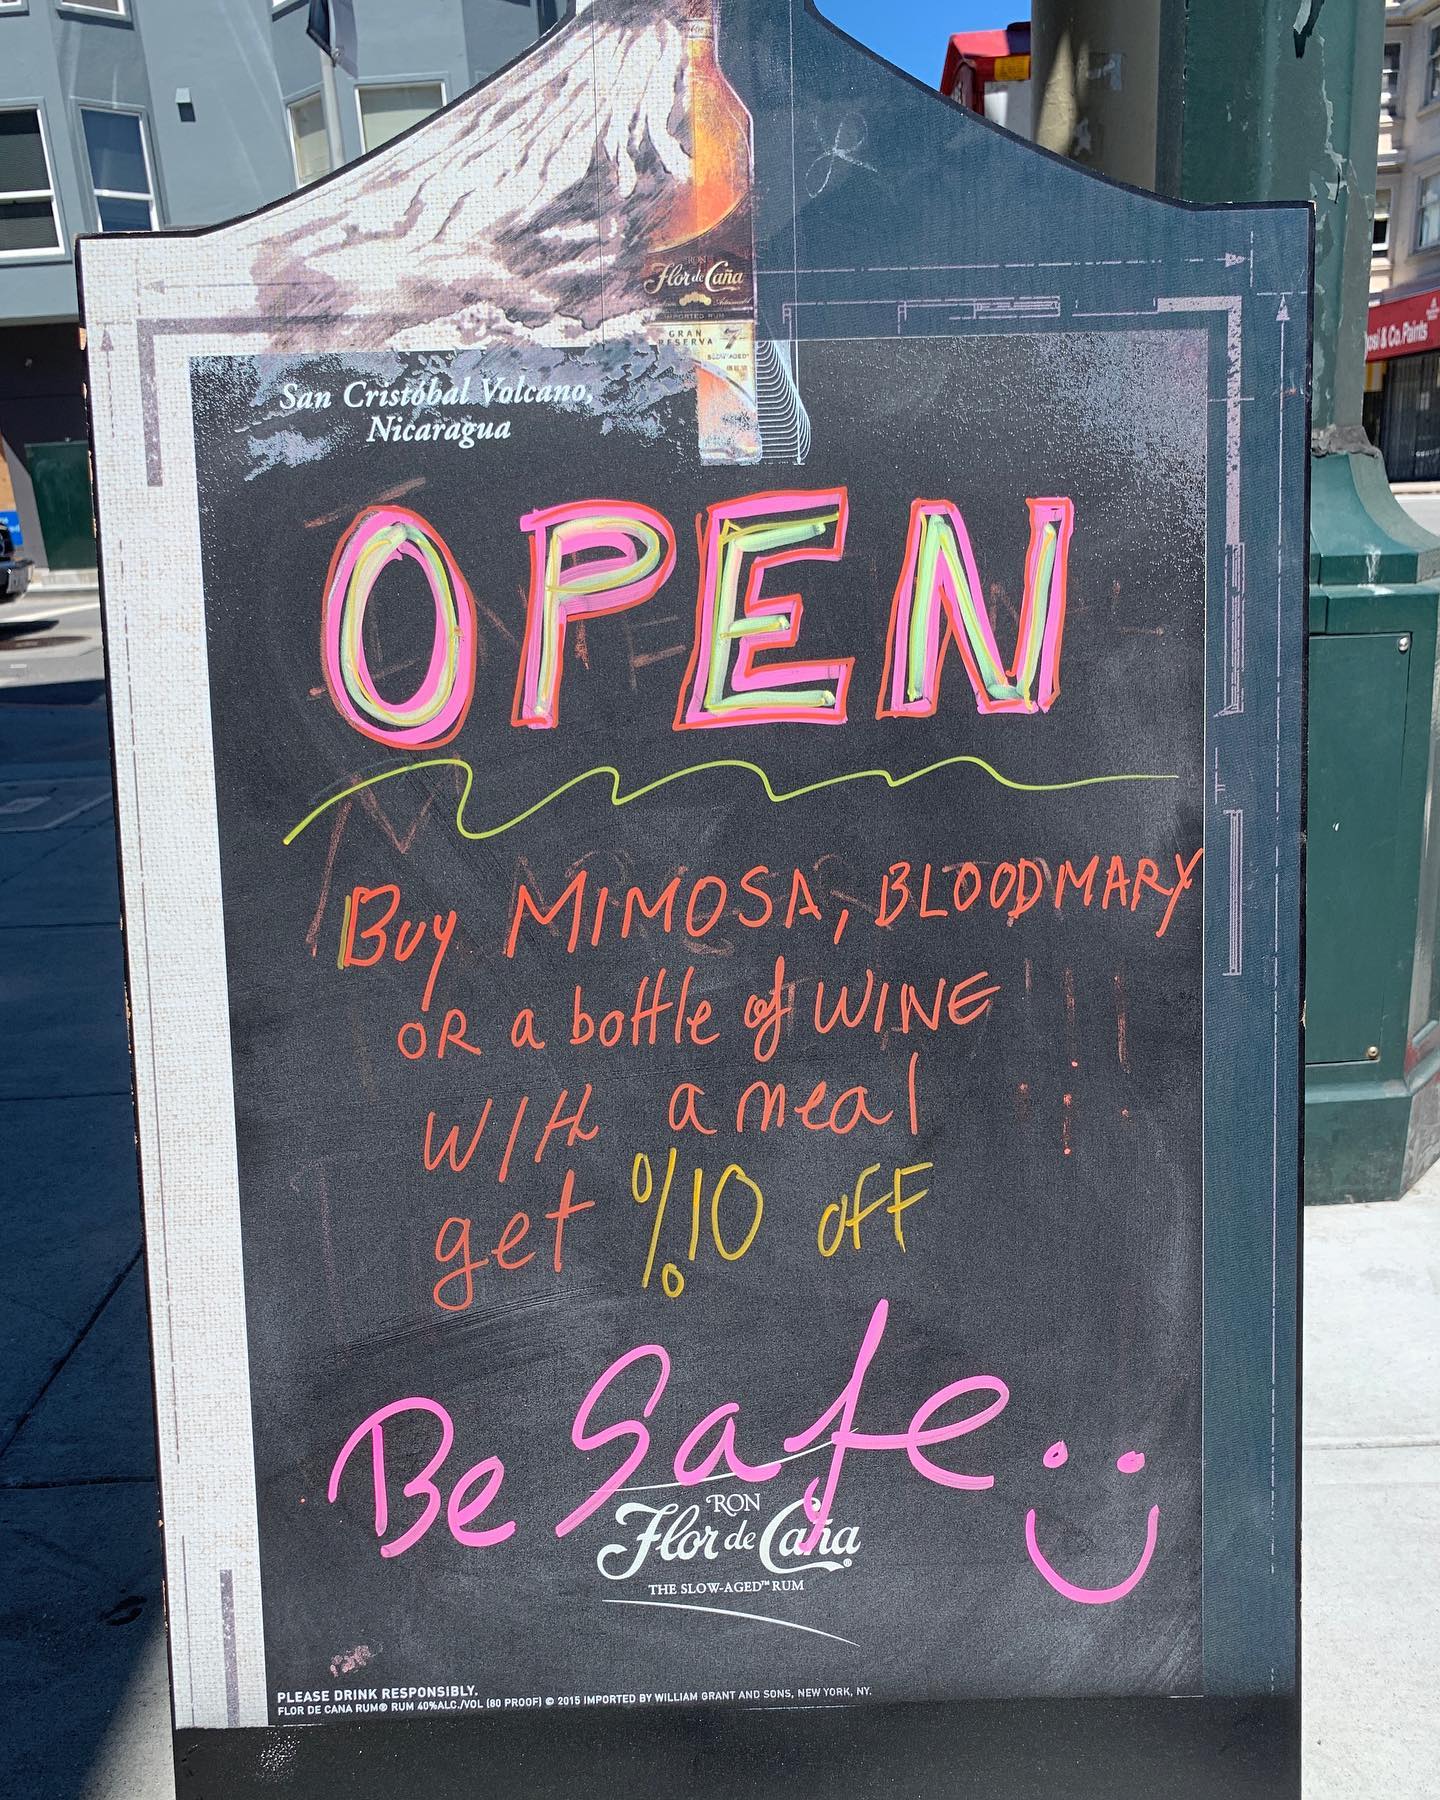 RON
Flor de Caña
IMPORTED RUM
GRAN
RESERVA 7
San Cristóbal Volcano,
Nicaragua
OPEN
Buy MIMOSA, BLOODMARY
OR a bottle of WINE
WITH a meal
get %10 OFF
Be Safe
RON
Flor de Caña®
THE SLOW-AGED™ RUM
PLEASE DRINK RESPONSIBLY.
FLOR DE CANA RUM® RUM 40%ALC./VOL (80 PROOF) © 2015 IMPORTED BY WILLIAM GRANT AND SONS, NEW YORK, NY.
& Co. Paints